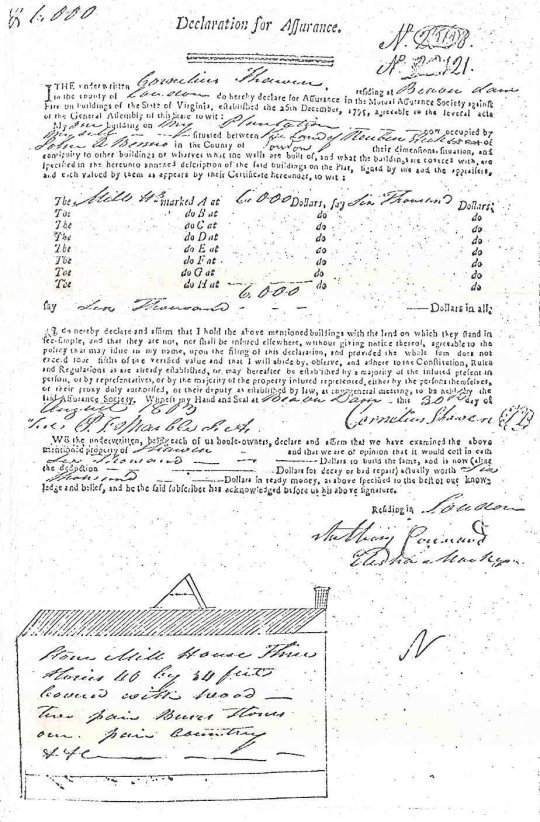 $ 6.000
Declaration for Assurance.
No.
No. 121.
I THE underwritten Cornelius Shawen residing at Beaver Dam
in the county of Loudon do hereby declare for Assurance in the Mutual Assurance Society against
Fire on buildings of the State of Virginia, established the 26th December, 1795, agreeable to the several acts
of the General Assembly of this State to wit:
My one building on My Plantation now occupied by
situated between the Land of Reuben
John in the County of Loudon their dimensions, situation, and
contiguity to other buildings or wharves what the walls are built of, and what the buildings are covered with, are
specified in the hereunto annexed description of the said buildings on the Plat, signed by me and the appraisers,
and each valued by them as appears by their Certificate hereunder, to wit:
The Mill Hs marked A at 6.000 Dollars, say Six Thousand Dollars;
The do B at do do
The do C at do do
The do D at do do
The do E at do do
The do F at do do
The do G at do do
The do H at do do
6.000
say Six Thousand Dollars in all;
I do hereby declare and affirm that I hold the above mentioned buildings with the land on which they stand in
fee-simple, and that they are not, nor shall be insured elsewhere, without giving notice thereof, agreeable to the
policy that may issue in my name, upon the filing of this declaration, and provided the whole sum does not
exceed four fifths of the verified value and that I will abide by, observe, and adhere to the Constitution, Rules
and Regulations as are already established, or may hereafter be established by a majority of the insured present in
person, or by representatives, or by the majority of the property insured represented, either by the persons themselves,
or their proxy duly authorised, or their deputy as established by law, at any general meeting, to be held by the
said Assurance Society. Witness my Hand and Seal at Beaver Dam this 30th day of
August 1803 Cornelius Shawen
WE the underwritten, being each of us house-owners, declare and affirm that we have examined the above
mentioned property of Shawen and that we are of opinion that it would cost in cash
Six Thousand Dollars to build the same, and is now (after
the deduction Dollars for decay or bad repair) actually worth Six
Thousand Dollars in ready money, as above specified to the best of our know-
ledge and belief, and he the said subscriber has acknowledged before us his above signature.
Residing in Loudon
Anthony Connard
Elisha
Stone Mill House Three
Stories 46 by 34 feet
Covered with wood
two pair Burrs Stones
one pair Country
&c
N